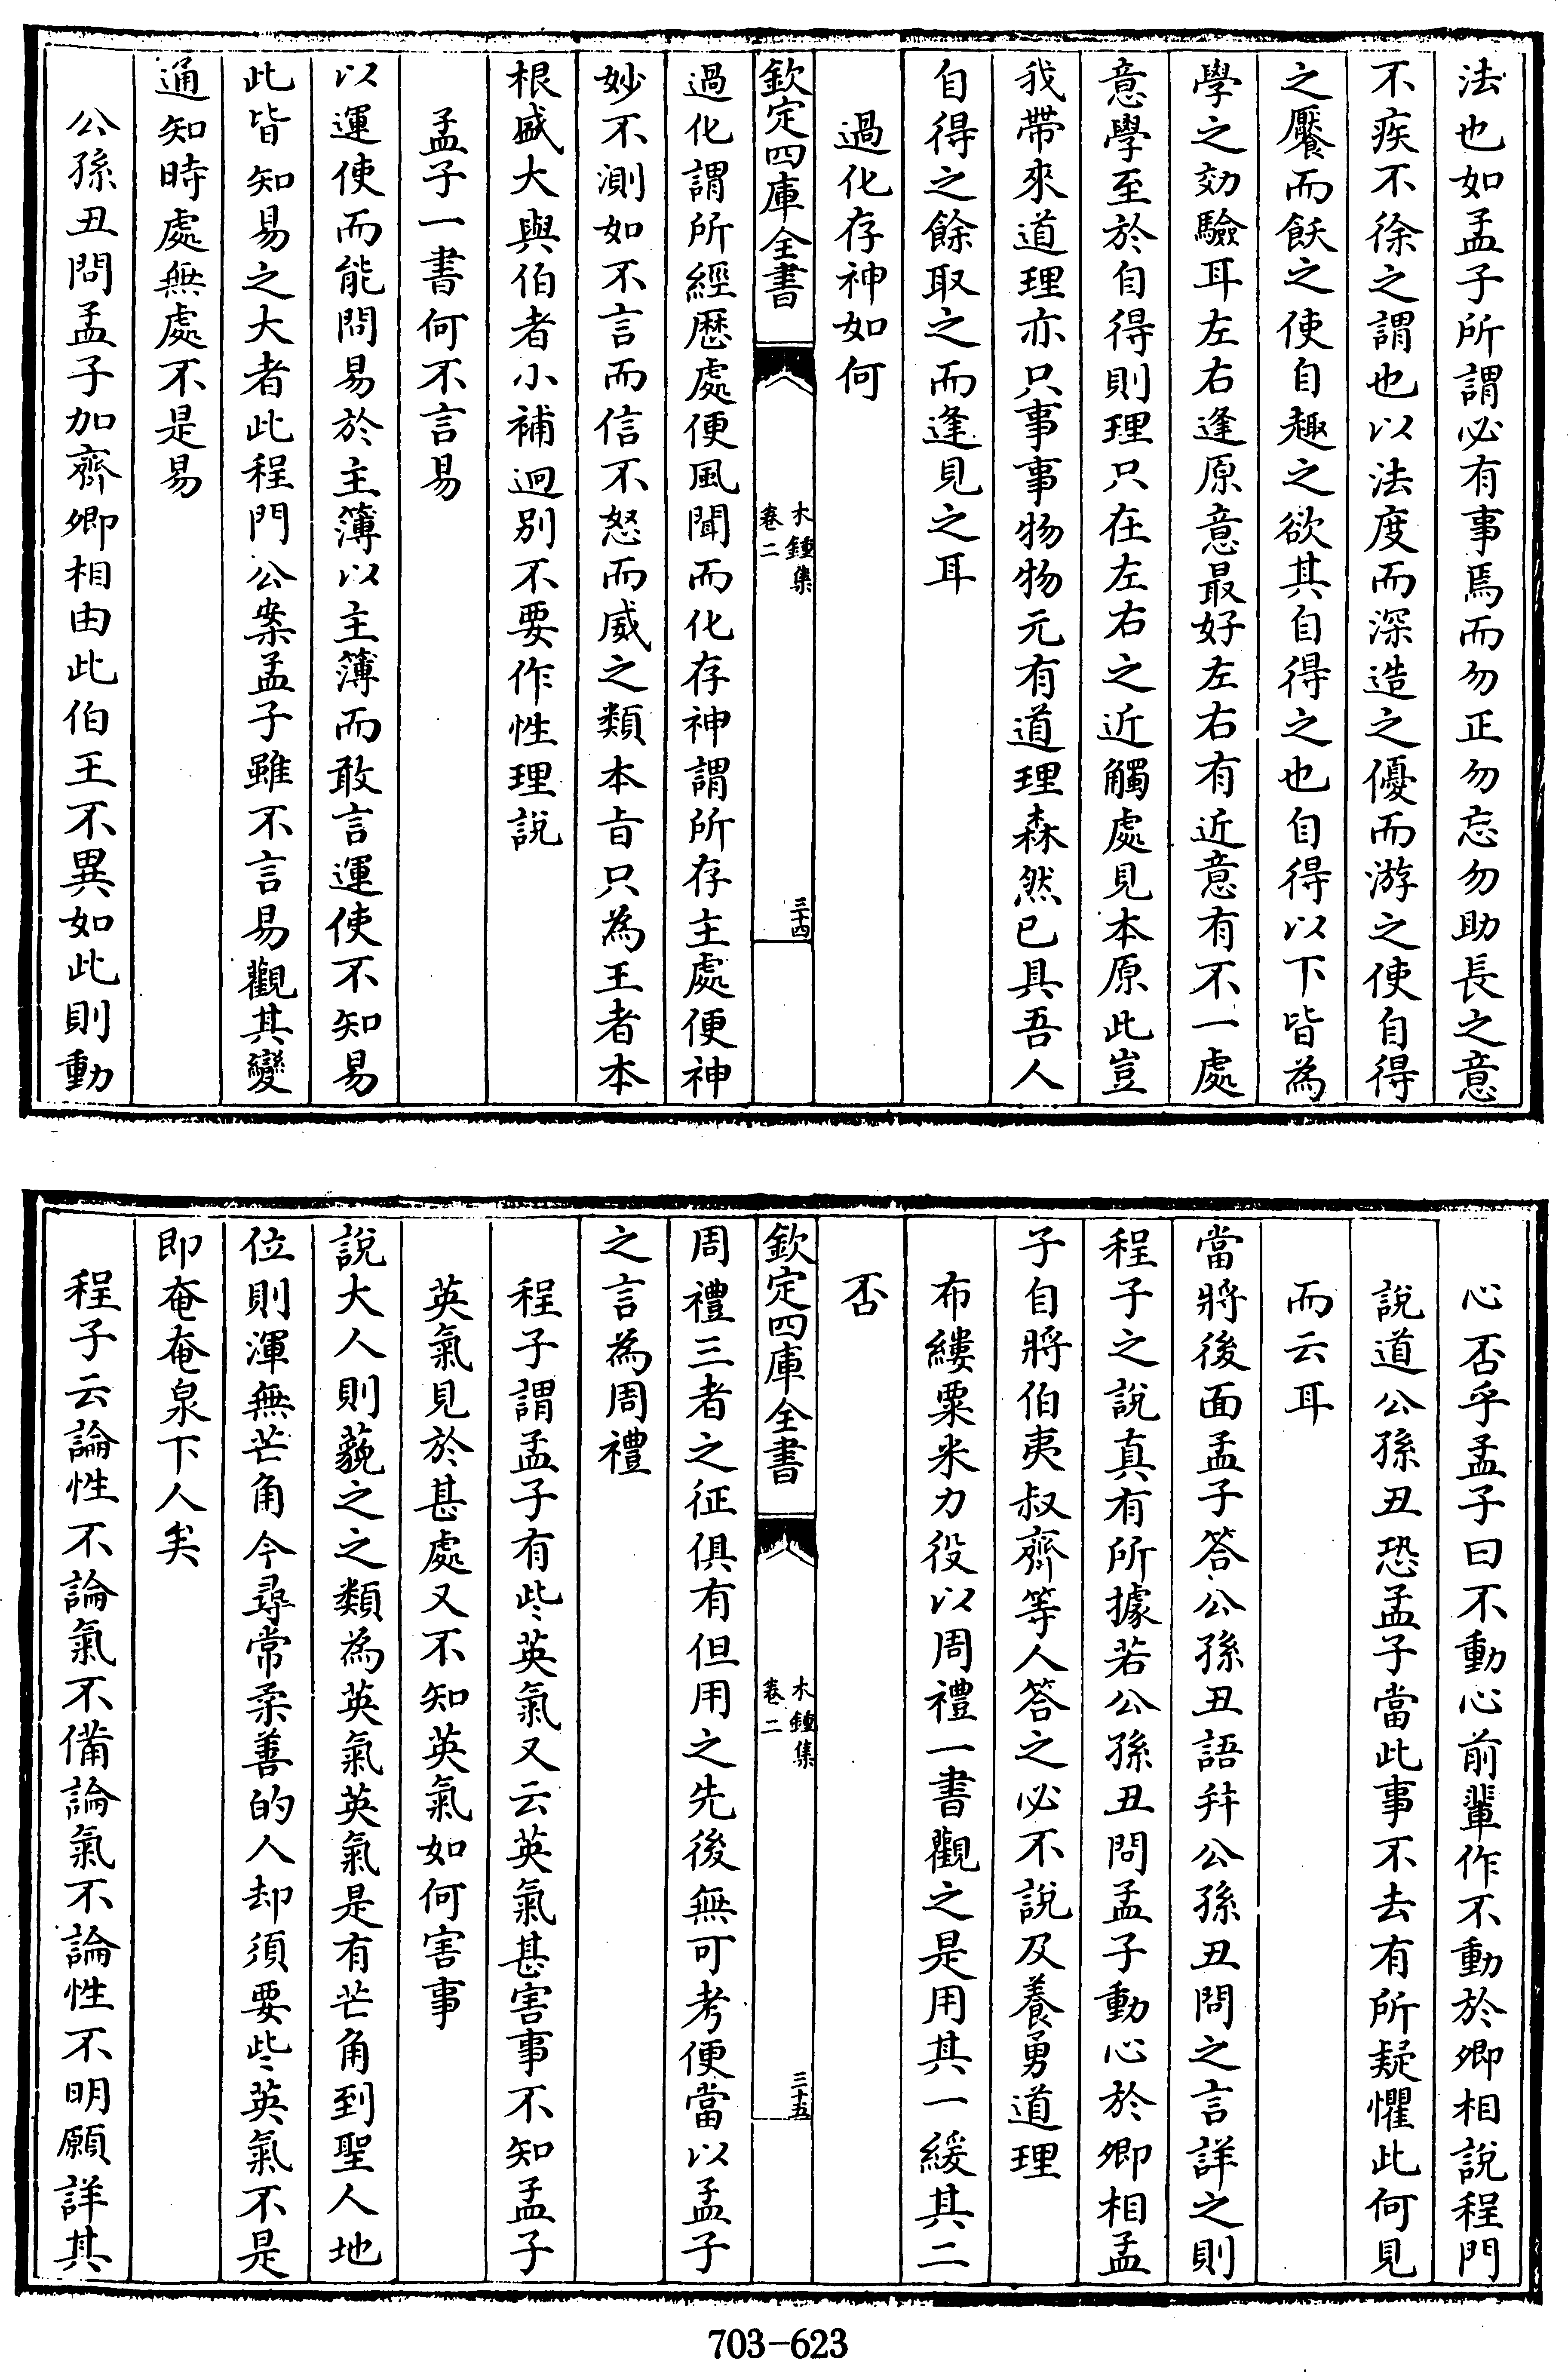 法也如孟子所謂必有事焉而勿正勿忘勿助長之意
不疾不徐之謂也以法度而深造之優而游之使自得
之饜而飫之使自趣之欲其自得之也自得以下皆為
學之効驗耳左右逢原意最好左右有近意有不一處
意學至於自得則理只在左右之近觸處見本原此豈
我帶來道理亦只事事物物元有道理森然已具吾人
自得之餘取之而逢見之耳
過化存神如何
欽定四庫全書
木鍾集
卷二
三十四
過化謂所經歷處便風聞而化存神謂所存主處便神
妙不測如不言而信不怒而威之類本旨只為王者本
根盛大與伯者小補迥別不要作性理說
孟子一書何不言易
以運使而能問易於主簿以主簿而敢言運使不知易
此皆知易之大者此程門公案孟子雖不言易觀其變
通知時處無處不是易
公孫丑問孟子加齊卿相由此伯王不異如此則動
心否乎孟子曰不動心前輩作不動於卿相說程門
說道公孫丑恐孟子當此事不去有所疑懼此何見
而云耳
當將後面孟子答公孫丑語幷公孫丑問之言詳之則
程子之說真有所據若公孫丑問孟子動心於卿相孟
子自將伯夷叔齊等人答之必不說及養勇道理
布縷粟米力役以周禮一書觀之是用其一緩其二
否
欽定四庫全書
木鍾集
卷二
三十五
周禮三者之征俱有但用之先後無可考便當以孟子
之言為周禮
程子謂孟子有些英氣又云英氣甚害事不知孟子
英氣見於甚處又不知英氣如何害事
說大人則藐之之類為英氣英氣是有芒角到聖人地
位則渾無芒角今尋常柔善的人却須要些英氣不是
即奄奄泉下人矣
程子云論性不論氣不備論氣不論性不明願詳其
703-623